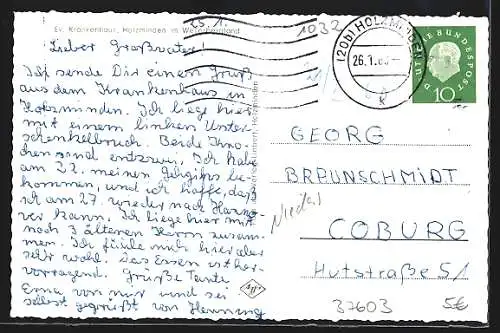 Ev. Krankenhaus, Holzminden im Weserbergland
25.1.
1032
Lieber Großvater!
Ich sende Dir einen Gruß
aus dem Krankenhaus in
Holzminden. Ich liege hier
mit einem linken Unter-
schenkelbruch. Beide Kno-
chen sind entzwei. Ich habe
am 22. meinen Gehgips be-
kommen, und ich hoffe, daß
ich am 27. wieder nach Hanno-
ver kann. Ich liege hier mit
noch 3 älteren Herrn zusam-
men. Ich fühle mich hier aber
sehr wohl. Das Essen ist her-
vorragend. Grüße Tante
Erna von mir und sei
selbst gegrüßt von Henning
(20b) HOLZMINDEN
26.1.
DEUTSCHE BUNDESPOST
10
GEORG
BRAUNSCHMIDT
COBURG
Hutstraße 51
Nieders
37603
5€